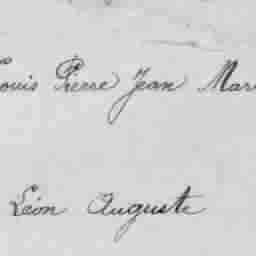 Louis Pierre Jean Mari
Léon Auguste